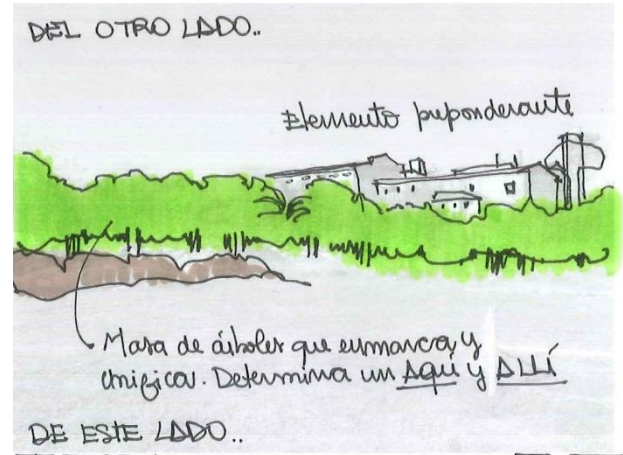 DEL OTRO LADO..
Elemento preponderante
Masa de árboles que enmarca y
unifica. Determina un AQUÍ y ALLÍ
DE ESTE LADO..